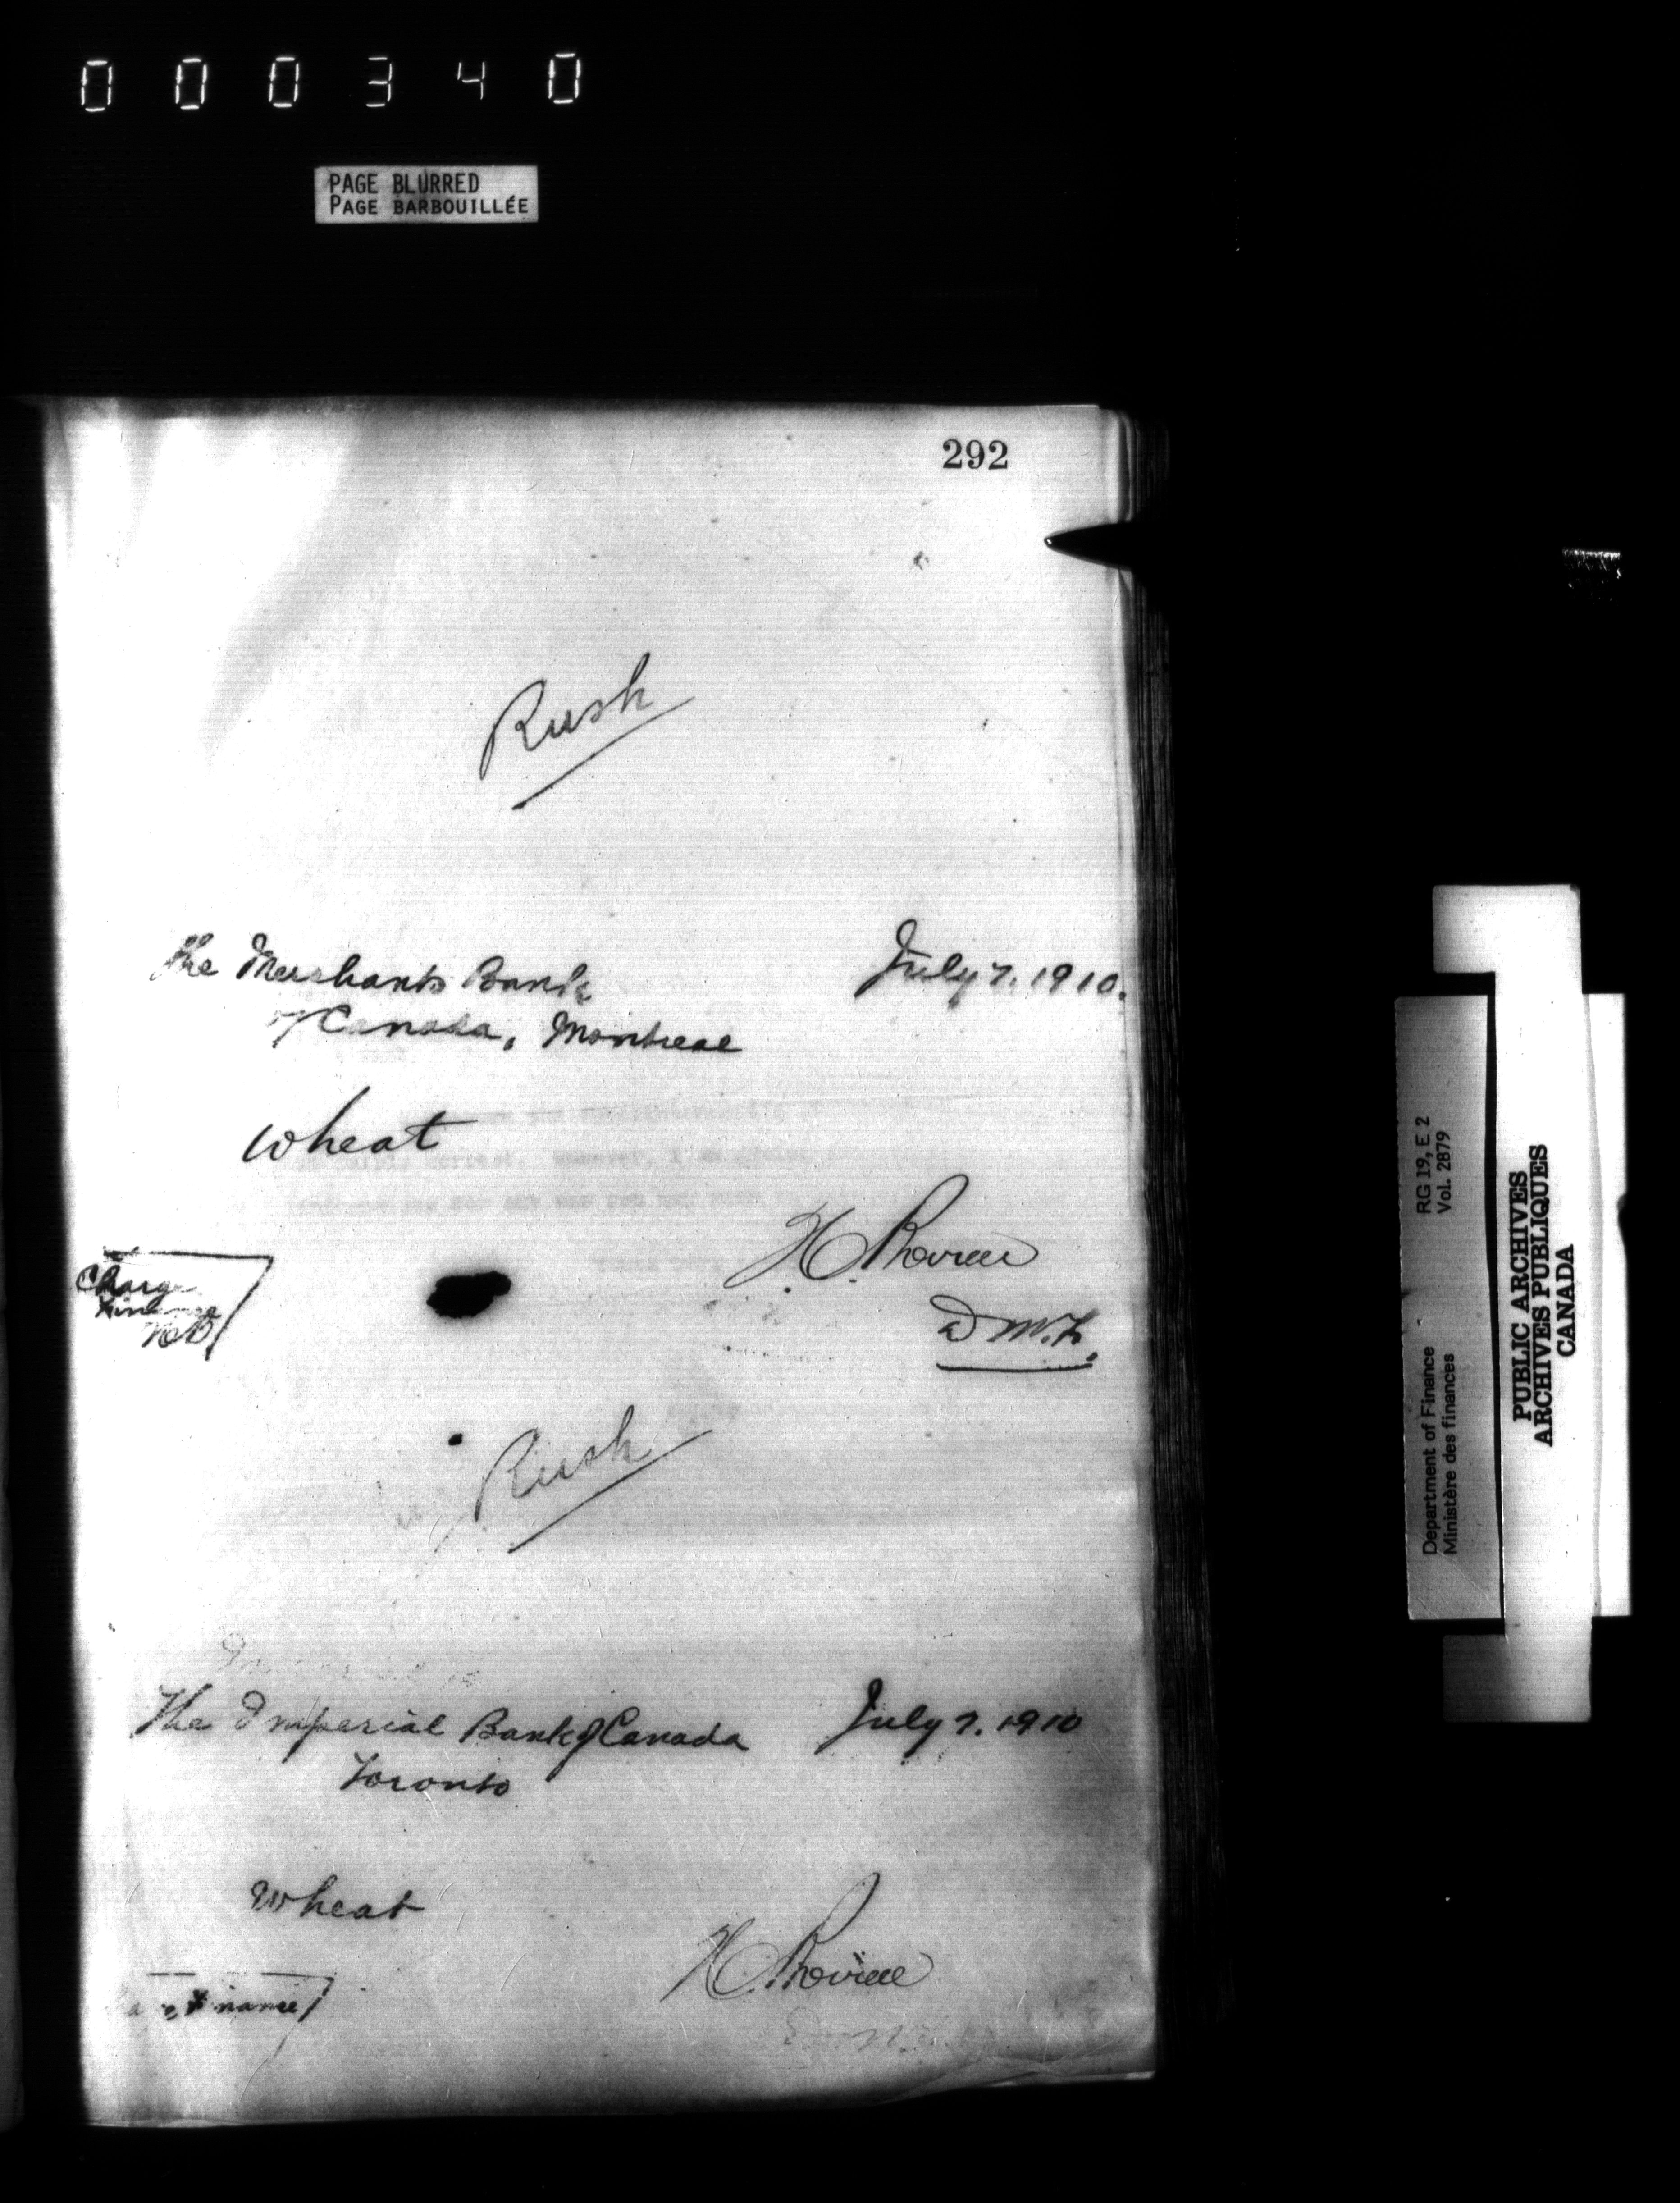 000340
PAGE BLURRED
PAGE BARBOUILLÉE
292
Rush
the Merchants Bank
of Canada, Montreal
July 7. 1910.
Wheat
Charge
H. Rovill
D M. F.
Rush
The Imperial Bank of Canada
Toronto
July 7. 1910
Wheat
Finance
RG 19, E 2
Vol. 2879
Department of Finance
Ministère des finances
PUBLIC ARCHIVES
ARCHIVES PUBLIQUES
CANADA